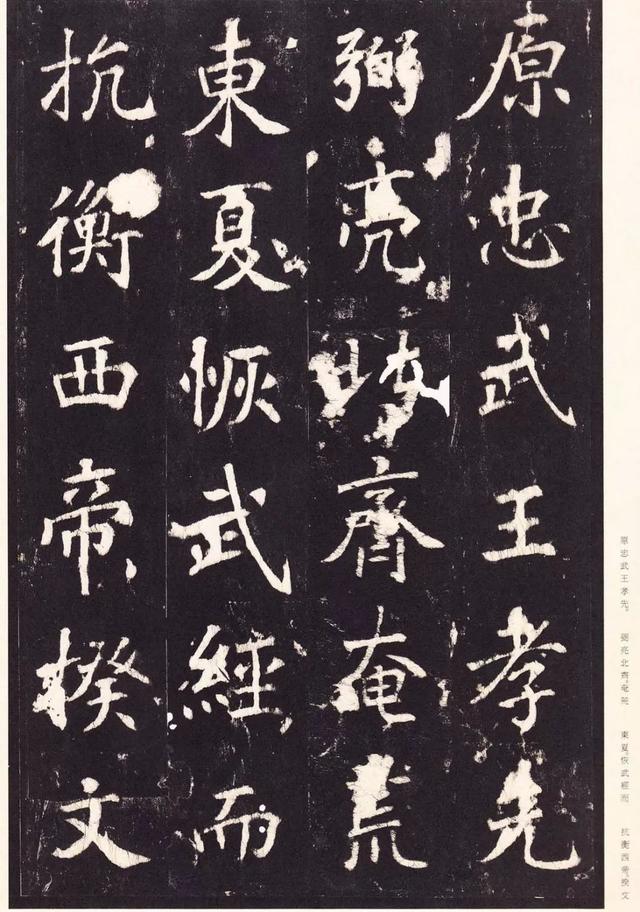 原忠武王孝先
弼亮北齊奄荒
東夏恢武經而
抗衡西帝揆文
原忠武王孝先。 弼亮北齊。奄荒 東夏。恢武經而 抗衡西帝。揆文